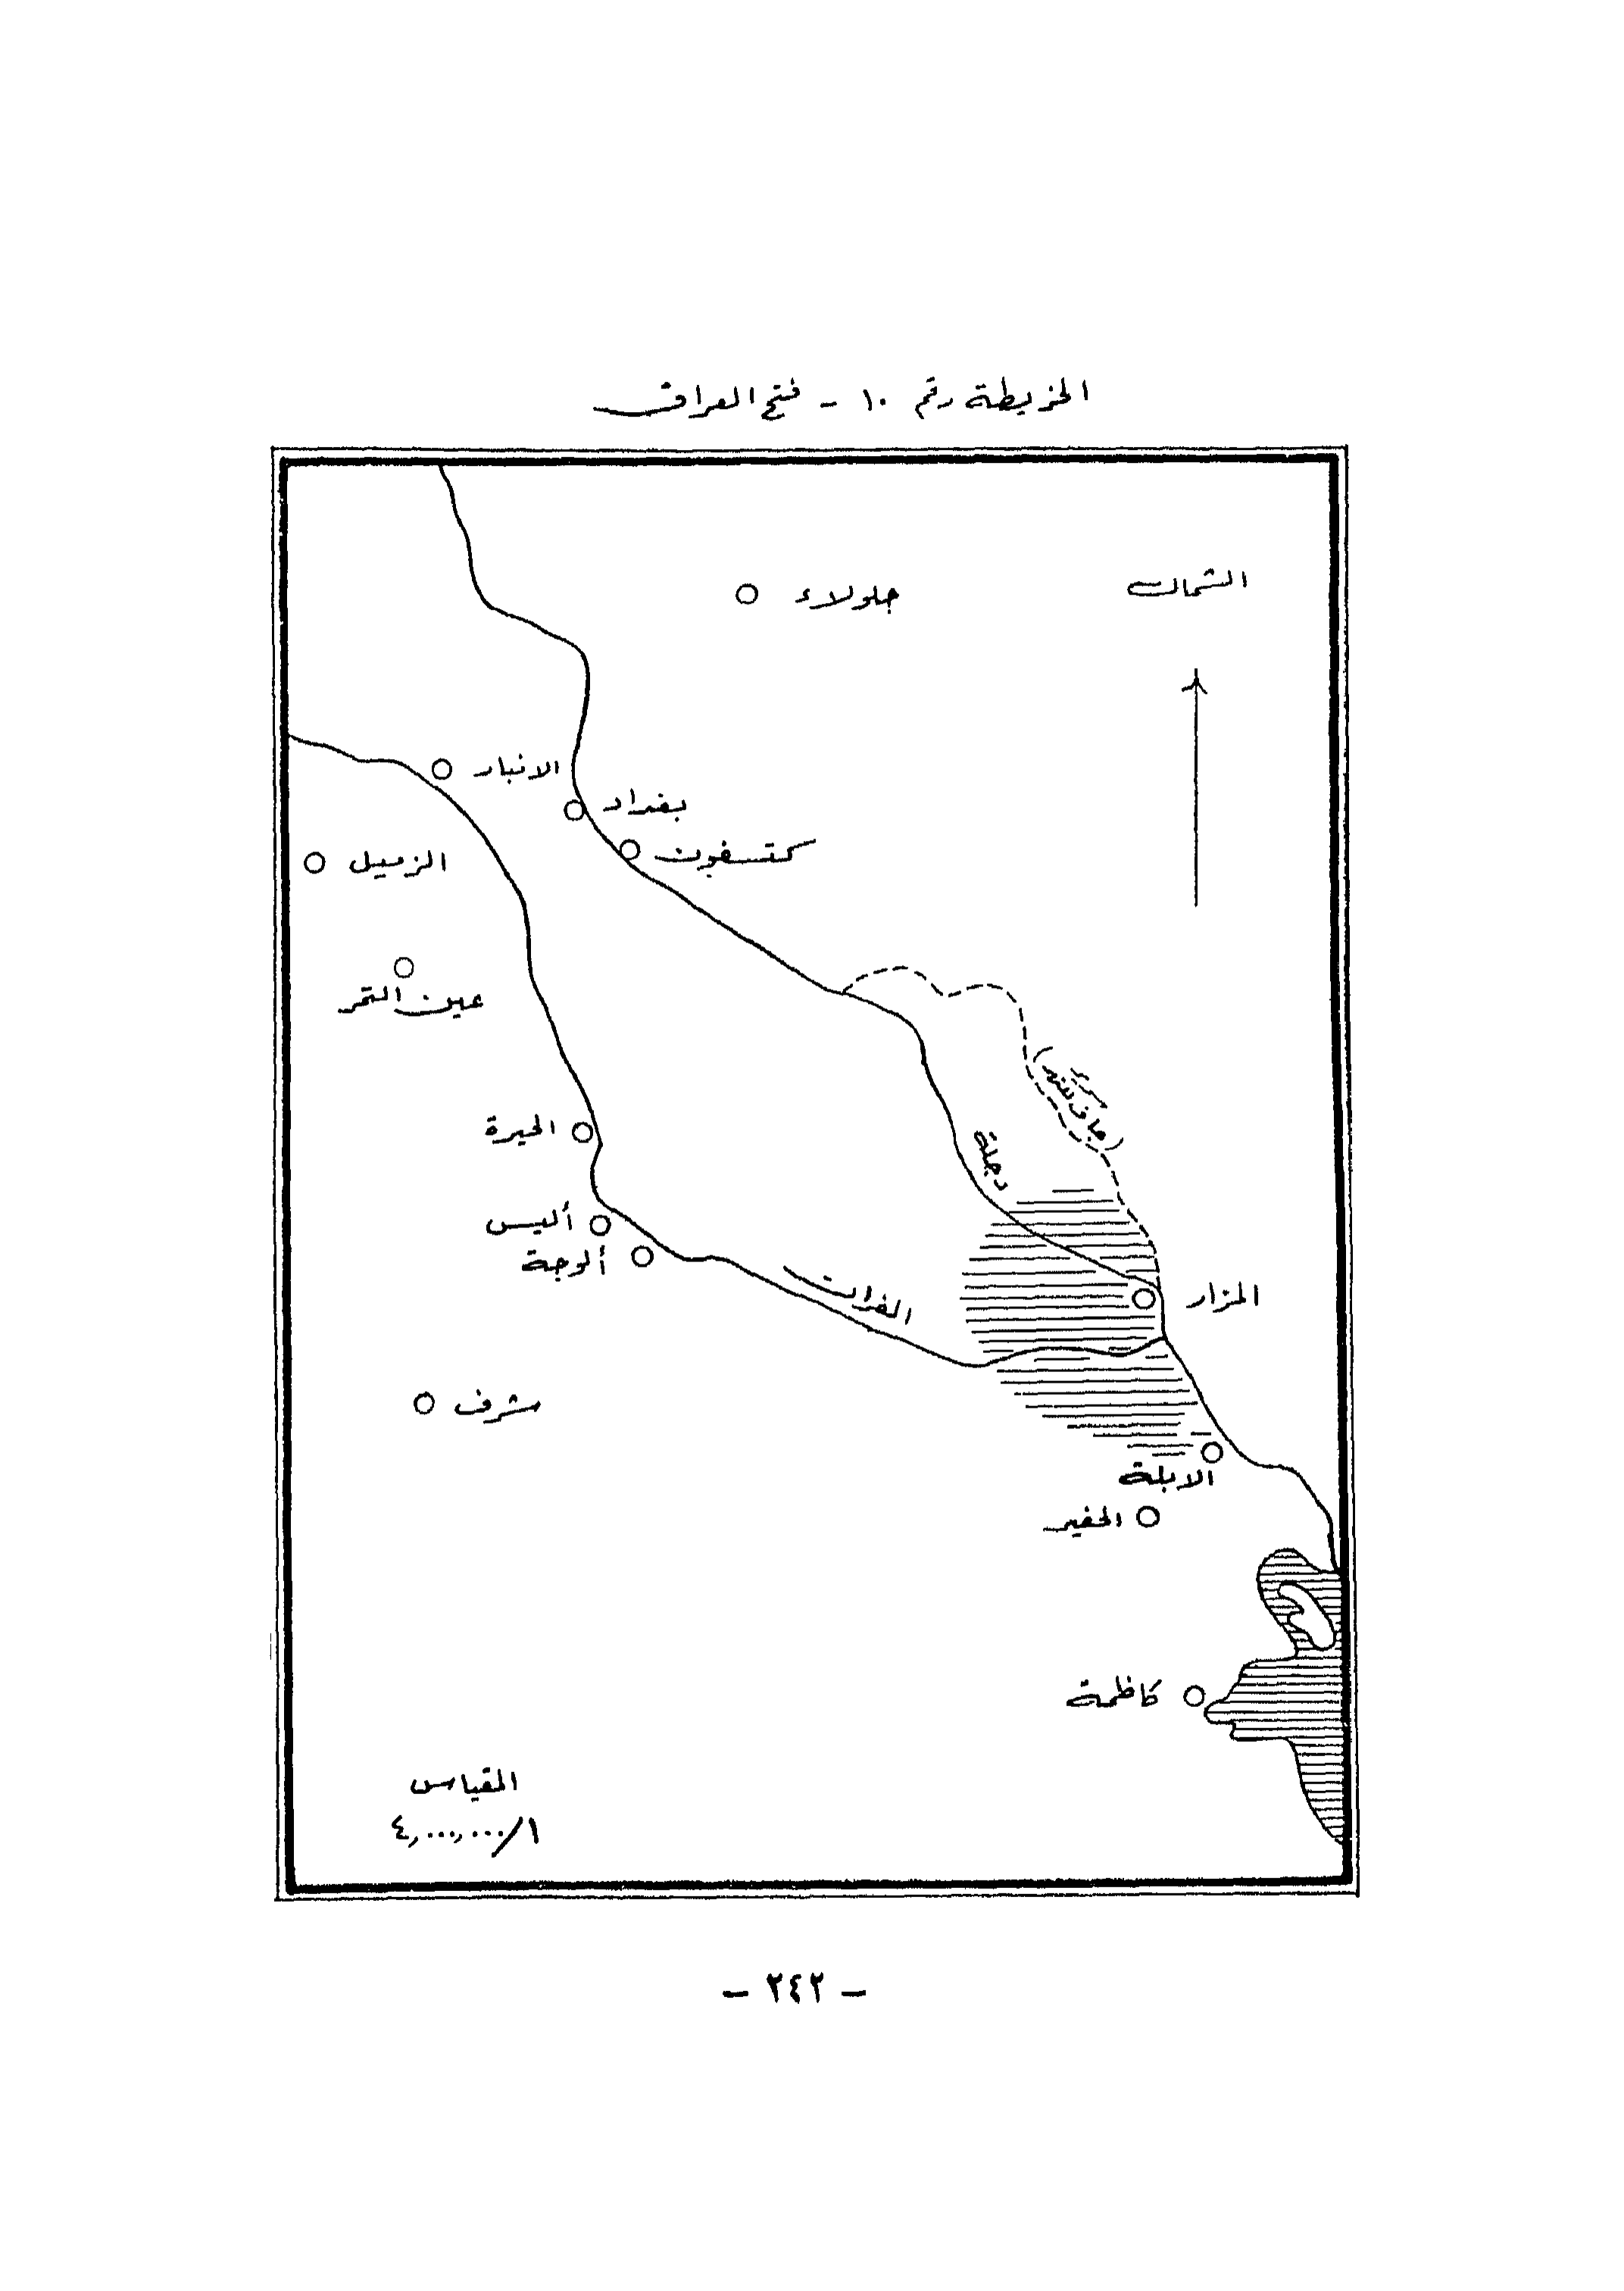 الخريطة رقم ١٠ - فتح العراق
الشمال
جلولاء
الانبار
بغداد
كتسفون
الزميل
عين التمر
(مجرى جاف
دجلة
الحيرة
أليس
ألوجة
الفرات
المزار
شرف
الابلة
الحفير
كاظمة
المقياس
١/٤,٠٠٠,٠٠٠
- ٢٤٢ -